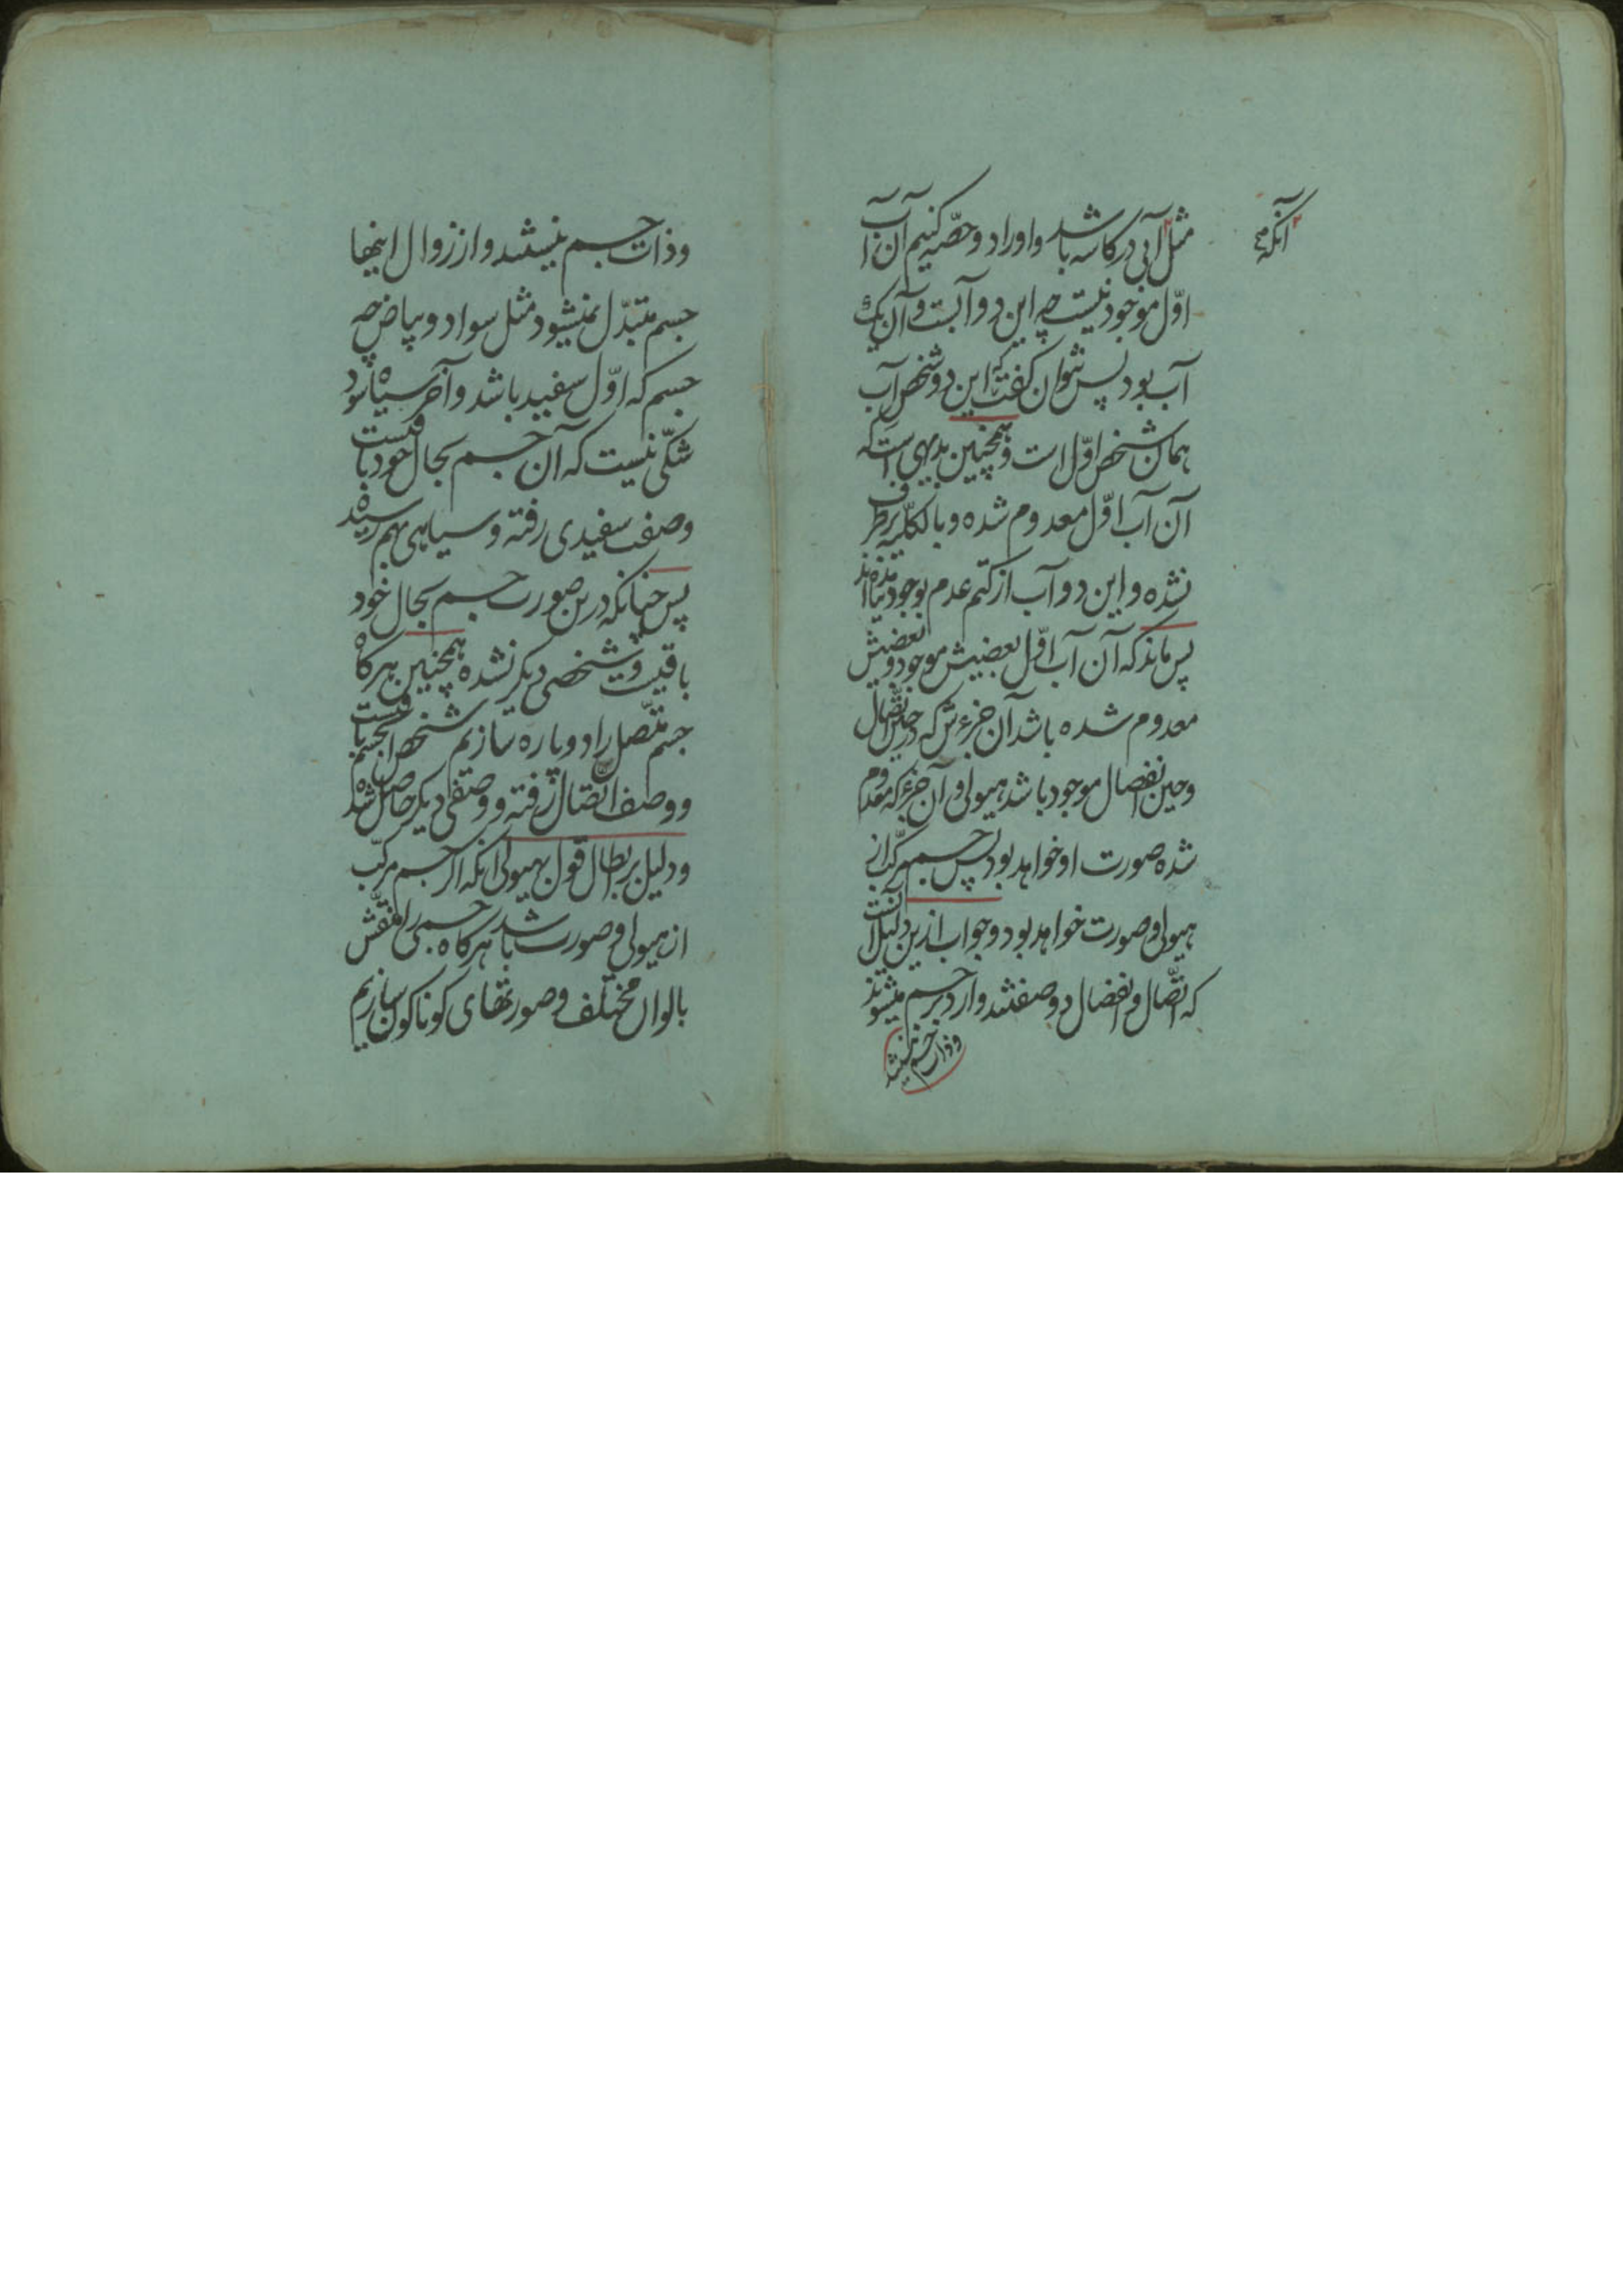 آنکه صح
مثل آبی در کاسه باشد و او را دو حصّه کنیم آن آب
اوّل موجود نیست چه این دو آبست و آن یک
آب بود پس نتوان گفت که این دو شخص آب
همان شخص اوّل است و همچنین بدیهی است که
آن آب اوّل معدوم شده و بالکلّیه برطرف
نشده و این دو آب از کتم عدم بوجود نیامده‌اند
پس ماند که آن آب اوّل بعضیش موجود و بعضیش
معدوم شده باشد آن جزءش که در حین اتّصال
و حین انفصال موجود باشد هیولی و آن جزء که معدوم
شده صورت او خواهد بود پس جسم مرکّب از
هیولی و صورت خواهد بود و جواب ازین دلیل آنست
که اتّصال و انفصال دو صفتند وارد بر جسم میشوند
و ذات جسم نیستند
و ذات جسم نیستند و از زوال اینها
جسم متبدّل نمیشود مثل سواد و بیاض چه
جسم که اوّل سفید باشد و آخر سیاه شود
شکّی نیست که آن جسم بحال خود باقیست
وصف سفیدی رفته و سیاهی بهم رسیده
پس چنانکه درین صورت جسم بحال خود
باقیست و شخصی دیگر نشده همچنین هرگاه
جسم متّصل را دو پاره سازیم شخص آن جسم باقیست
و وصف اتّصال رفته و وصفی دیگر حاصل شده
و دلیل بر ابطال قول بهیولی آنکه اگر جسم مرکّب
از هیولی و صورت باشد هرگاه جسمی را منقّش
بالوان مختلف و صورتهای گوناگون سازیم